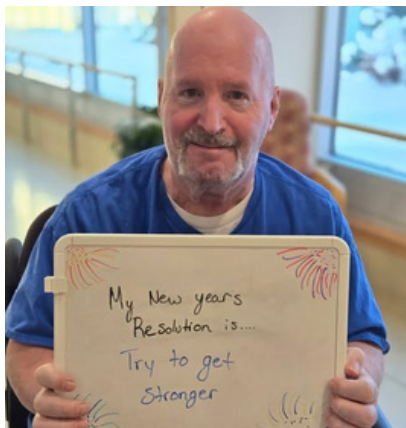 My New years
Resolution is....
Try to get
Stronger